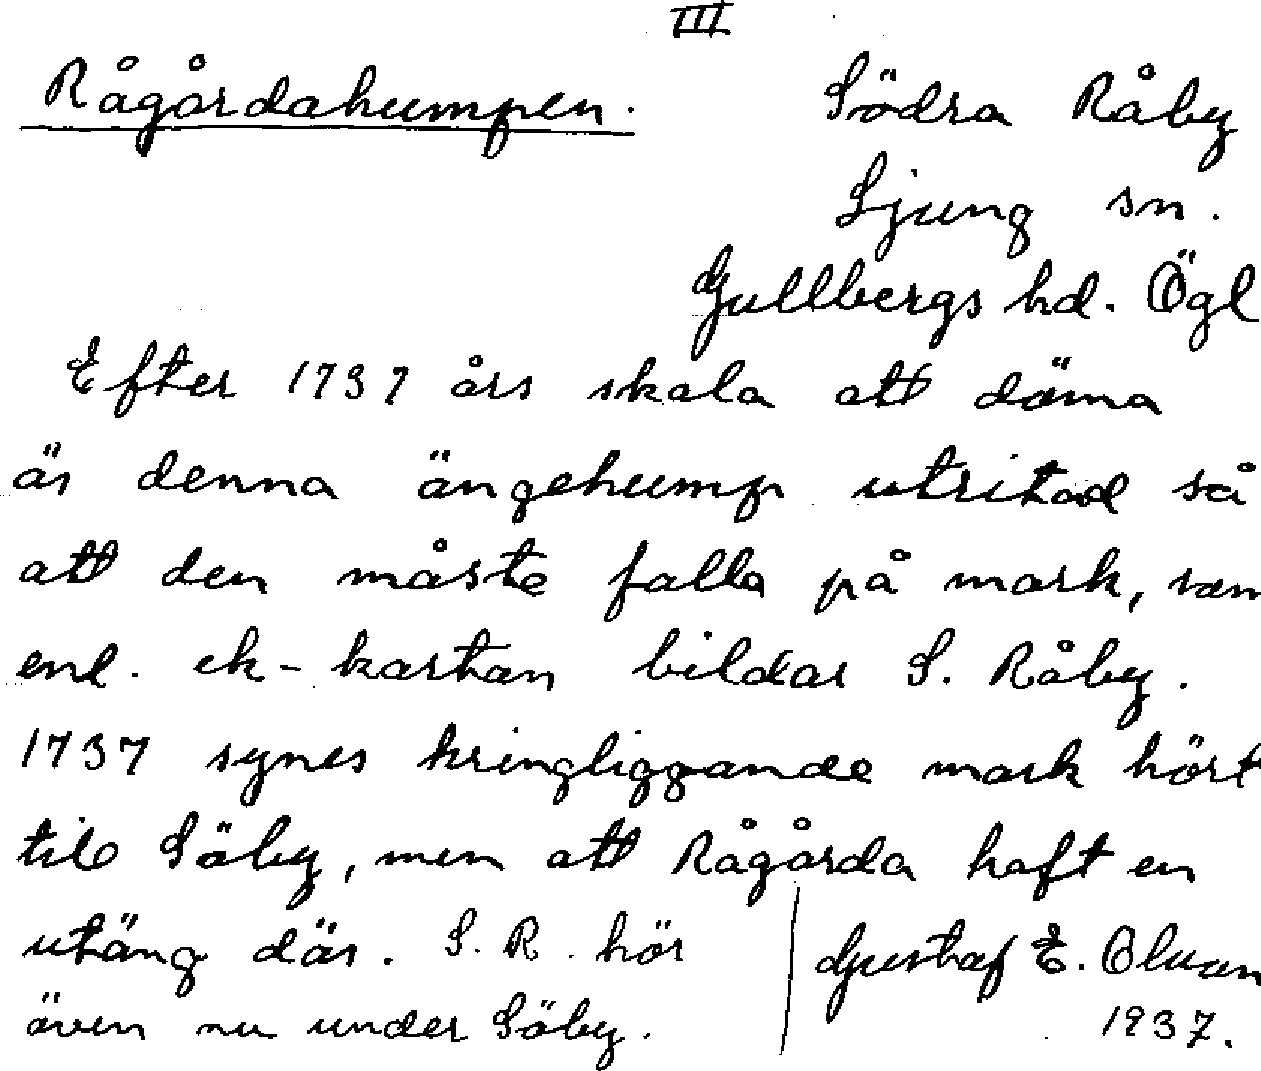 III
Rågårdahumpen.
Södra Råby
Ljung sn.
Gullbergs hd. Ögl
Efter 1737 års skala att döma
är denna ängehump utritad så
att den måste falla på mark, som
enl. ek-kartan bildar S. Råby.
1737 synes kringliggande mark hört
till Säby, men att Rågårda haft en
utäng där. S. R. hör
även nu under Säby.
Gustaf E. Olsson
1937.